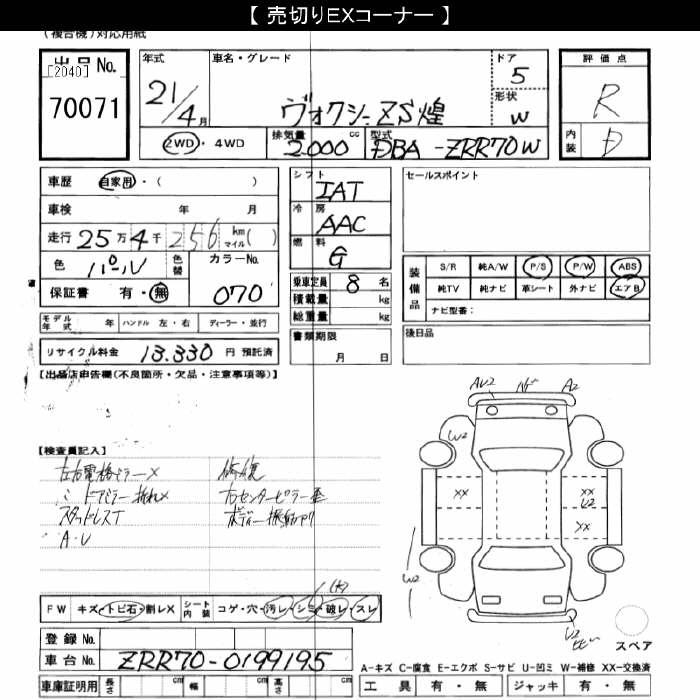 【 売切りEXコーナー 】
（複合機）対応用紙
出品No.
[2040]
70071
年式
21/4月
車名・グレード
ヴォクシーZS煌
ドア
5
形状
W
評価点
R
内装
D
2WD・4WD
排気量 2.000 cc
型式 DBA-ZRR70W
車歴 自家用・( )
車検 年 月
走行 25万4千256 km マイル( )
色 パール 色替
カラーNo. 070
保証書 有・無
シフト IAT
冷房 AAC
燃料 G
乗車定員 8 名
積載量 kg
総重量 kg
セールスポイント
装備品
S/R 純A/W P/S P/W ABS
純TV 純ナビ 革シート 外ナビ エアB
ナビ型番：
モデル年式 年 ハンドル 左・右 ディーラー・並行
書類期限 月 日
後日品
リサイクル料金 13.330 円 預託済
【出品店申告欄(不良箇所・欠品・注意事項等)】
【検査員記入】
左右電格ミラー×
ドアミラー折れ×
スタッドレスT
A・U
修復
右センターピラー
ボディー
AU2 A2
W2
XX XX
U2
XX
W2
U2
FW キズ・トビ石・割レX シート内装 コゲ・穴・汚レ・シミ・破レ・スレ
(大)
登録No.
車台No. ZRR70-0199195
スペア
A-キズ C-腐食 E-エクボ S-サビ U-凹ミ W-補修 XX-交換済
車庫証明用 長さ cm 幅 cm 高さ cm
工具 有・無 ジャッキ 有・無